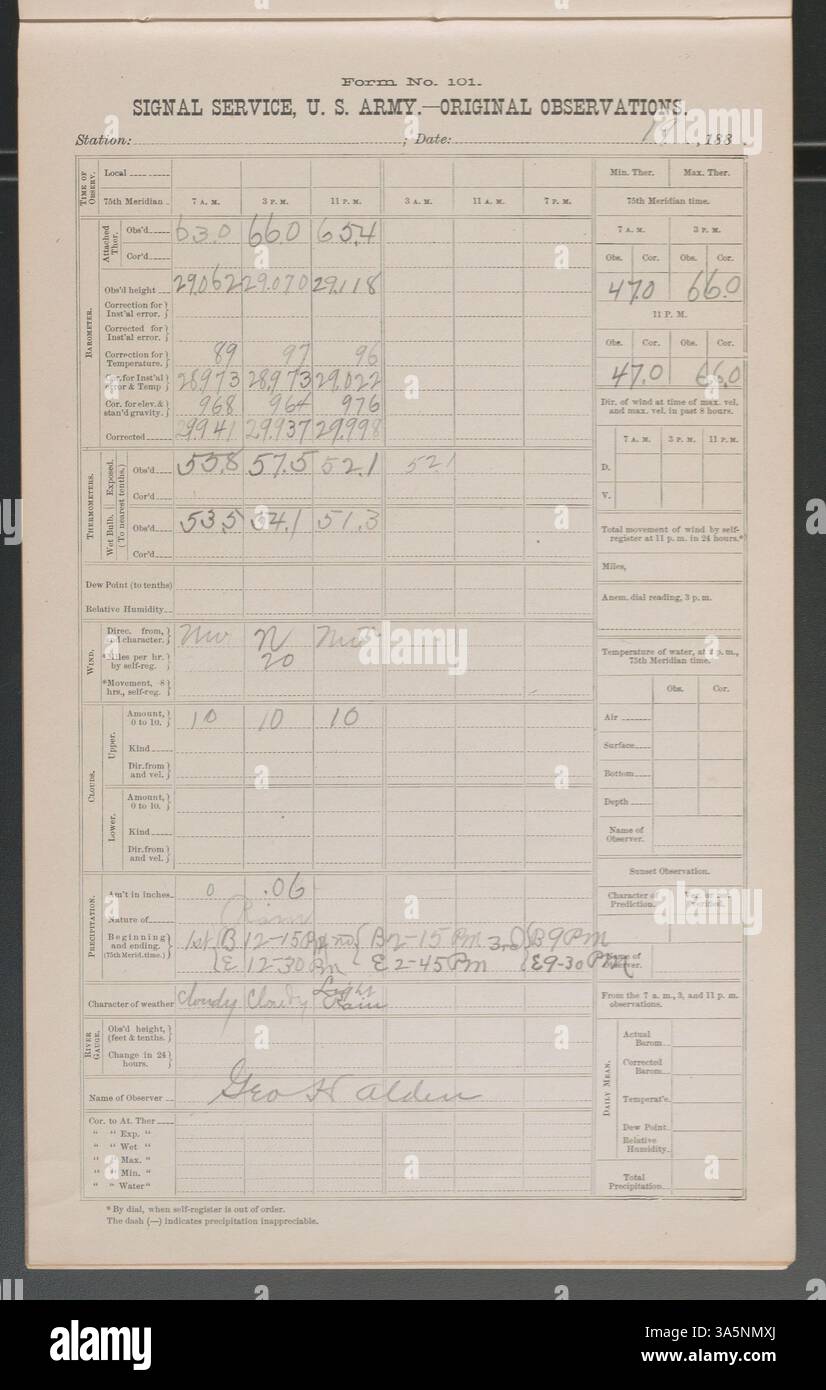 Form No. 101.
SIGNAL SERVICE, U. S. ARMY.—ORIGINAL OBSERVATIONS.
Station: ; Date: , 188 .
TIME OF OBSERV.
Local
75th Meridian 7 A. M. 3 P. M. 11 P. M. 3 A. M. 11 A. M. 7 P. M.
BAROMETER.
Attached Ther.
Obs'd 63.0 66.0 65.4
Cor'd
Obs'd height 29.062 29.070 29.118
Correction for Inst'al error.
Corrected for Inst'al error.
Correction for Temperature. 89 97 96
Cor. for Inst'al error & Temp 28.973 28.973 29.022
Cor. for elev. & stan'd gravity. 968 964 976
Corrected 29.941 29.937 29.998
THERMOMETERS.
(To nearest tenths.)
Exposed.
Obs'd 53.8 57.5 52.1 52.1
Cor'd
Wet Bulb.
Obs'd 53.5 54.1 51.3
Cor'd
Dew Point (to tenths)
Relative Humidity
WIND.
Direc. from, and character. NW N NW
*Miles per hr. by self-reg. 20
*Movement, 8 hrs., self-reg.
CLOUDS.
Upper.
Amount, 0 to 10. 10 10 10
Kind
Dir. from and vel.
Lower.
Amount, 0 to 10.
Kind
Dir. from and vel.
PRECIPITATION.
Am't in inches 0 .06
Nature of Rain
Beginning and ending. (75th Merid. time.)
1st B 12-15 Pm 2nd B 2-15 Pm 3rd B 9 Pm
E 12-30 Pm E 2-45 Pm E 9-30 PM
Character of weather Cloudy Cloudy Light Rain
RIVER GAUGE.
Obs'd height, (feet & tenths.)
Change in 24 hours.
Name of Observer Geo H Alden
Cor. to At. Ther
" " Exp. "
" " Wet "
" " Max. "
" " Min. "
" " Water "
* By dial, when self-register is out of order.
The dash (—) indicates precipitation inappreciable.
Min. Ther. Max. Ther.
75th Meridian time.
7 A. M. 3 P. M.
Obs. Cor. Obs. Cor.
47.0 66.0
11 P. M.
Obs. Cor. Obs. Cor.
47.0 66.0
Dir. of wind at time of max. vel. and max. vel. in past 8 hours.
7 A. M. 3 P. M. 11 P. M.
D.
V.
Total movement of wind by self-register at 11 p. m. in 24 hours.*
Miles,
Anem. dial reading, 3 p. m.
Temperature of water, at 3 p. m., 75th Meridian time.
Obs. Cor.
Air
Surface
Bottom
Depth
Name of Observer.
Sunset Observation.
Character of Prediction. Ver. or not Verified.
Name of Observer.
From the 7 a. m., 3, and 11 p. m. observations.
DAILY MEAN.
Actual Barom.
Corrected Barom.
Temperat'e.
Dew Point.
Relative Humidity.
Total Precipitation.
alamy
Image ID: 3A5NMXJ
www.alamy.com